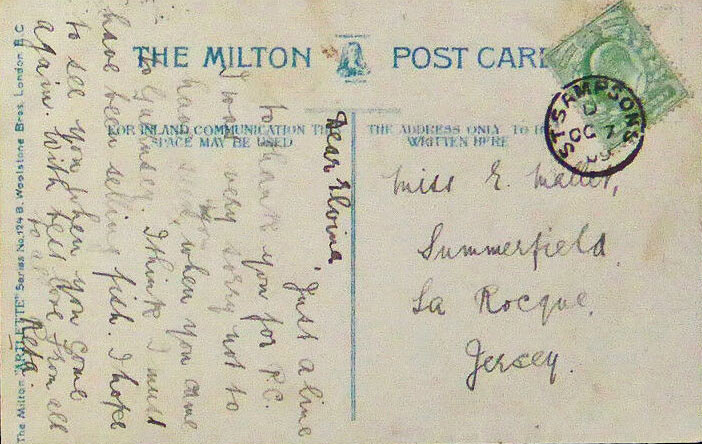 THE MILTON POST CARD
FOR INLAND COMMUNICATION THIS
SPACE MAY BE USED
THE ADDRESS ONLY TO BE
WRITTEN HERE
ST SAMPSON'S
Dear Elvina,
Just a line
to thank you for P.C.
I was very sorry not to
have you, when you came
to Guernsey. I think I must
have been selling fish. I hope
to see you when you come
again. With best love from all
to all
Reta.
Miss E. Mallet,
Summerfield,
La Rocque,
Jersey.
The Milton "ARTLETTE" Series No. 124 B. Woolstone Bros. London E.C